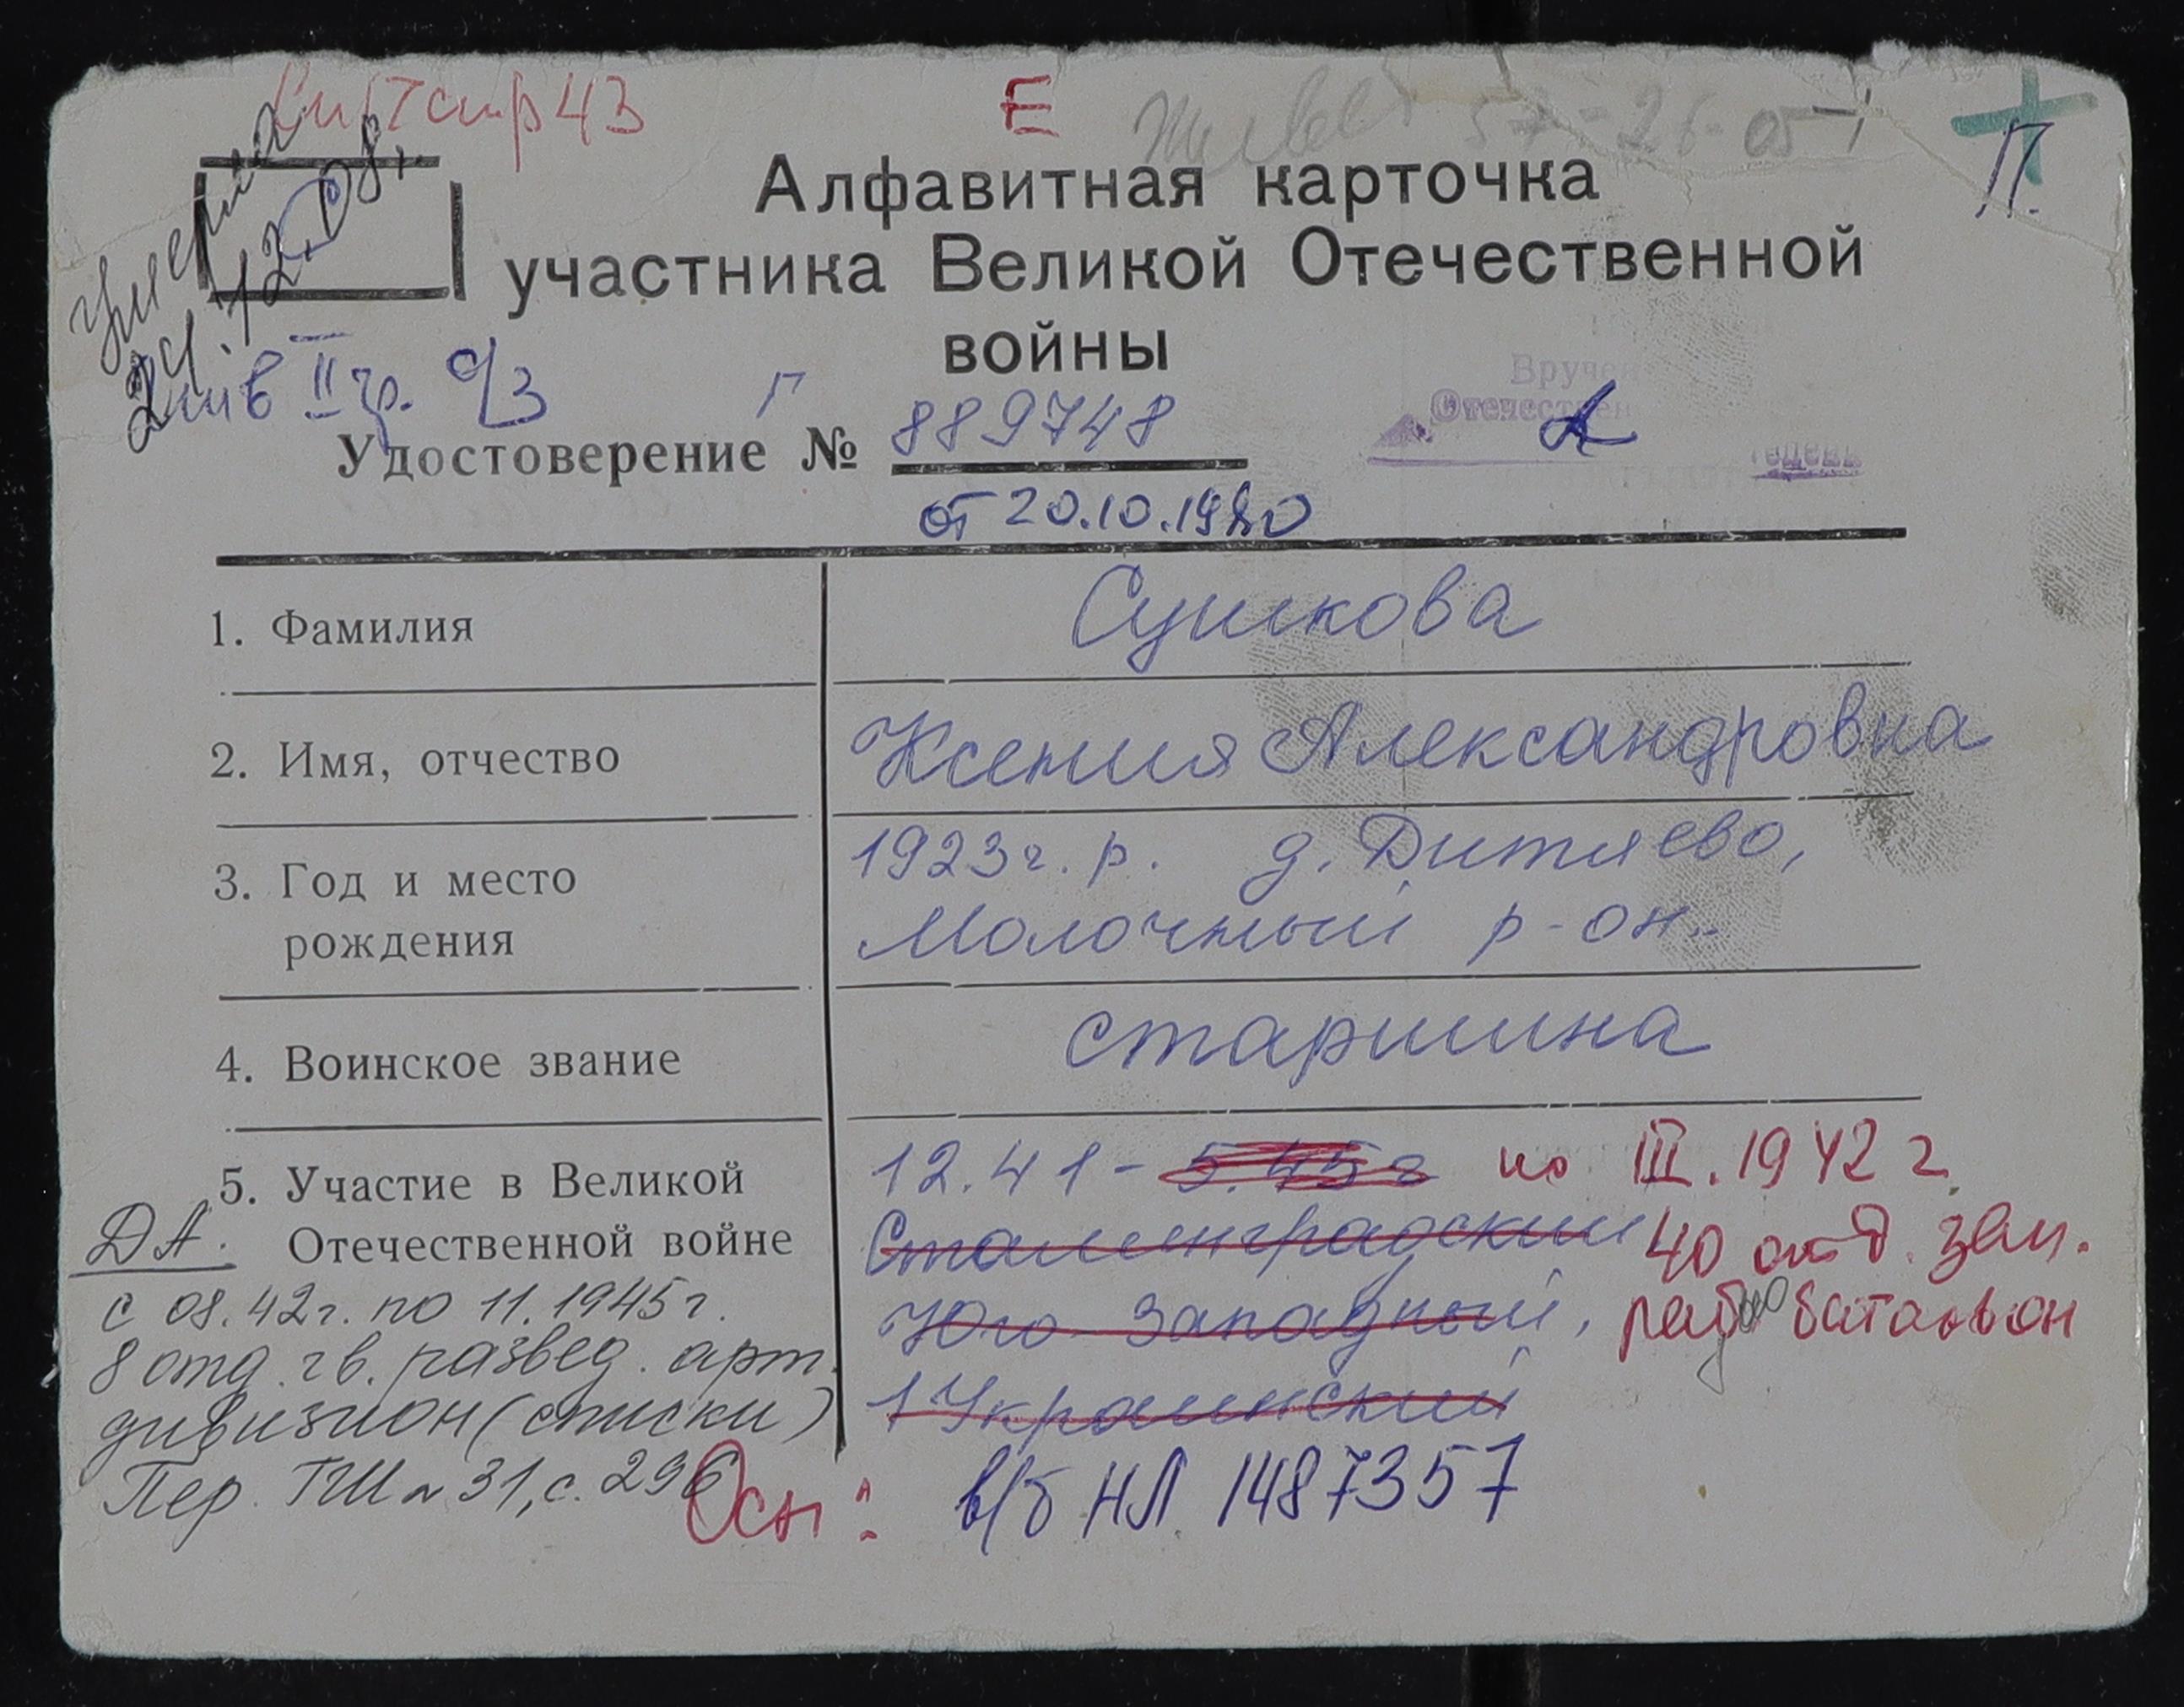 Е
57-26-05
П.
Алфавитная карточка
участника Великой Отечественной
войны
умерла
24.12.08г.
Инв II гр. о/з
Г
Вручен
Отечествен
Удостоверение № 889748
от 20.10.1980
1. Фамилия Сушкова
2. Имя, отчество Ксения Александровна
3. Год и место 1923г.р. д. Дитяево,
рождения Молочный р-он.
4. Воинское звание старшина
5. Участие в Великой 12.41 - 5.45г по III.1942г
Отечественной войне Сталинградский 40 отд. зен.
Юго-Западный, батальон
1 Украинский
ДА.
с 08.42г. по 11.1945г.
8 отд. гв. развед. арт.
дивизион (списки)
Пер. ГШ № 31, с. 296
Осн: в/б НЛ 1487357